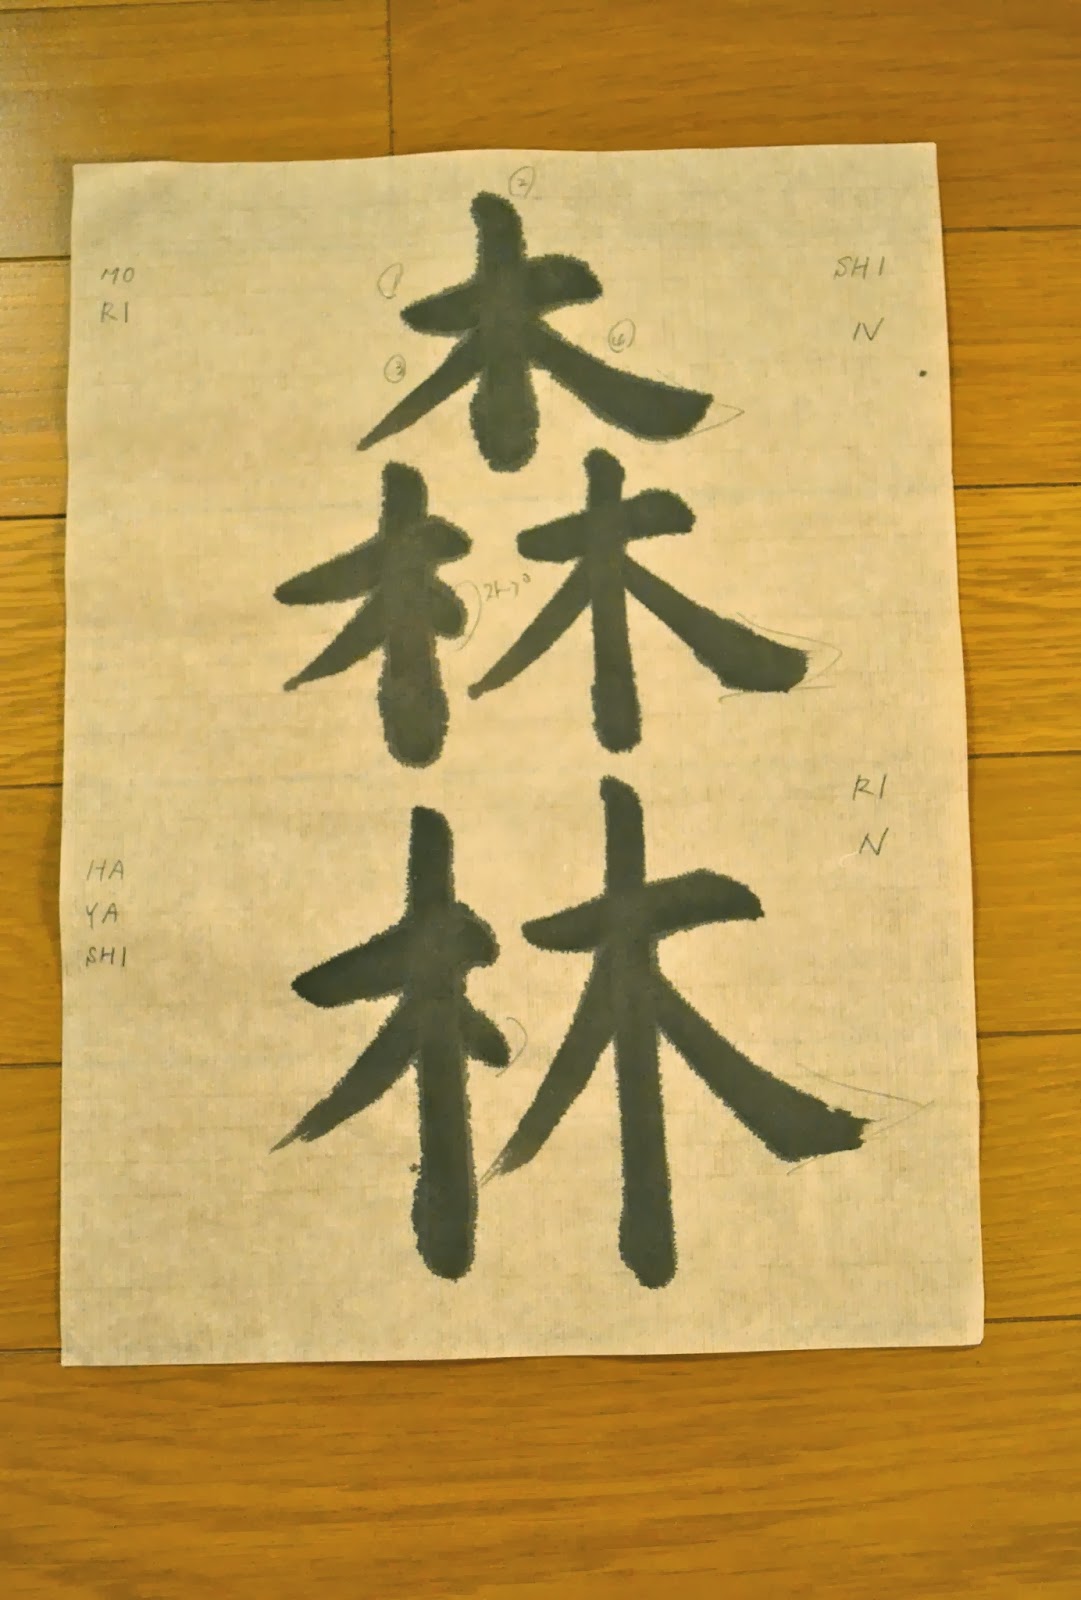 森
林
MO
RI
SHI
N
HA
YA
SHI
RI
N
①
②
③
④
ストップ